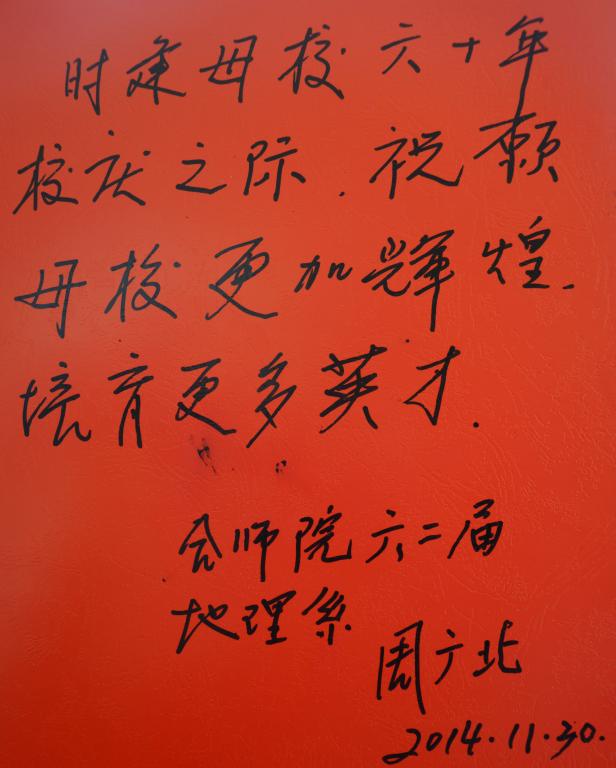 时逢母校六十年
校庆之际.祝願
母校更加辉煌.
培育更多英才.
合师院六二届
地理系
周广北
2014.11.30.